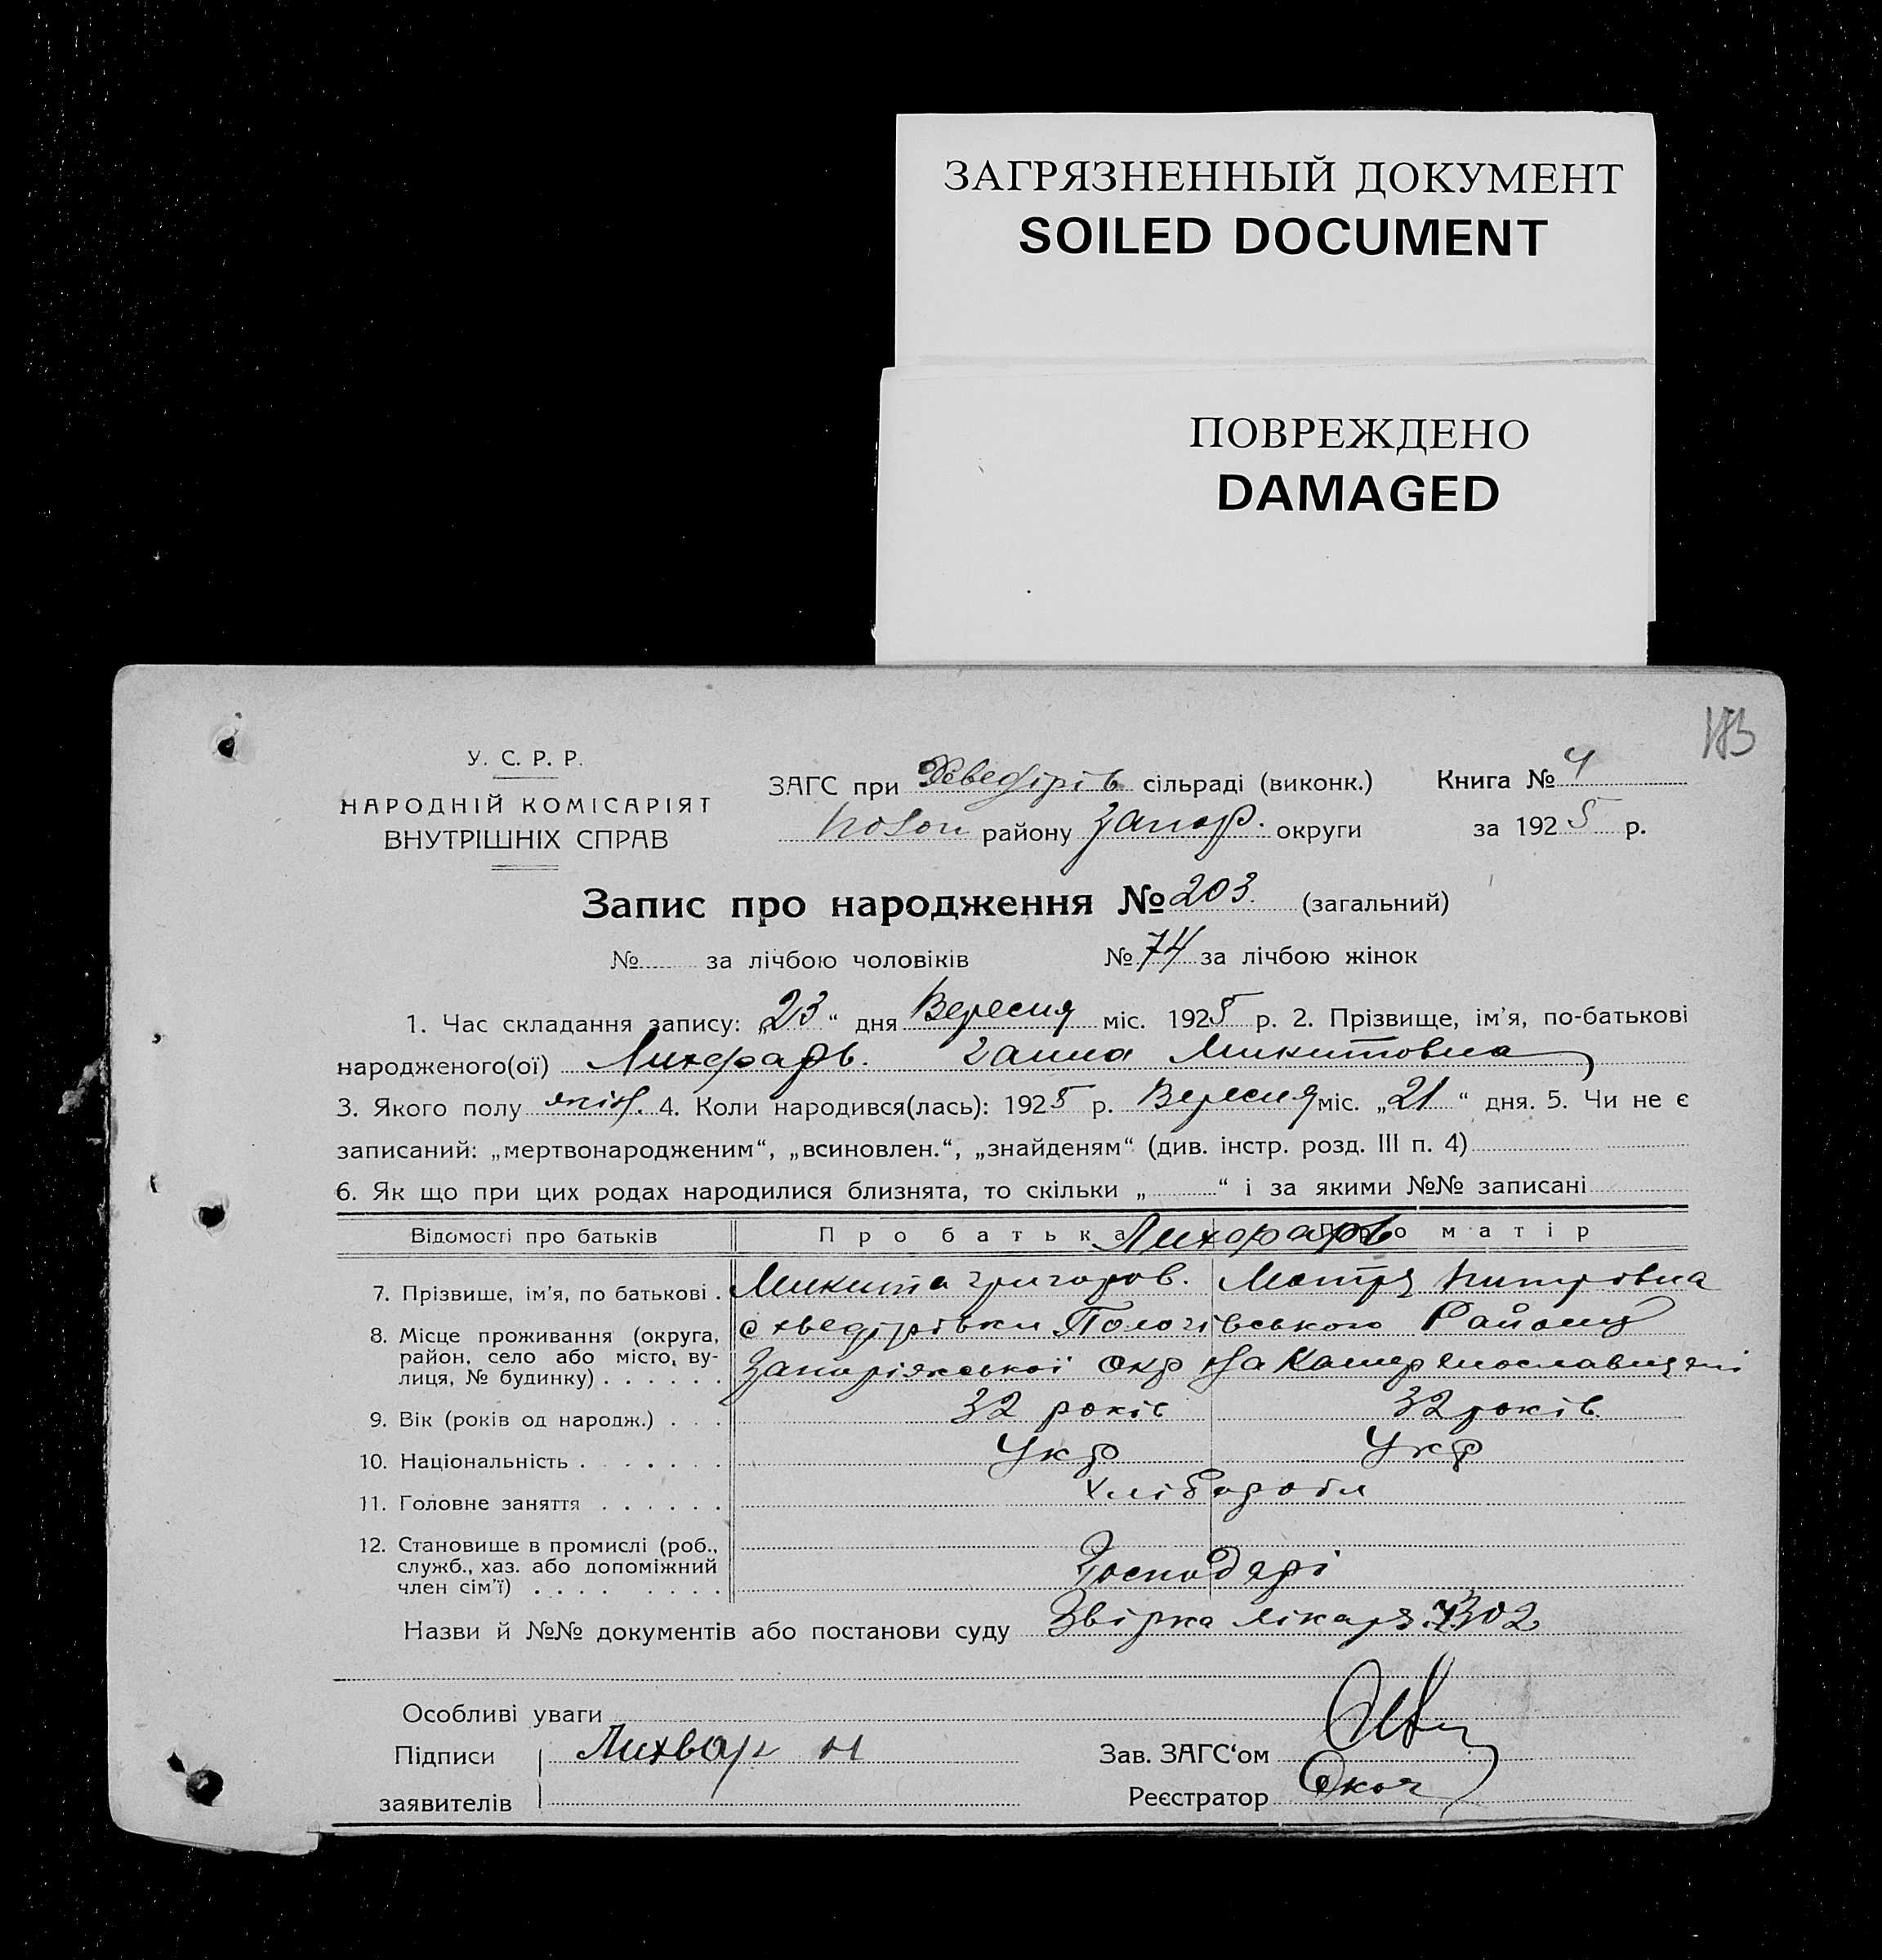 ЗАГРЯЗНЕННЫЙ ДОКУМЕНТ
SOILED DOCUMENT
ПОВРЕЖДЕНО
DAMAGED
183
У. С. Р. Р.
НАРОДНІЙ КОМІСАРІЯТ
ВНУТРІШНІХ СПРАВ
ЗАГС при Хведірів сільраді (виконк.) Книга № 4
району Запор. округи за 1925 р.
Запис про народження № 203. (загальний)
№ за лічбою чоловіків № 74 за лічбою жінок
1. Час складання запису: „23“ дня Вересня міс. 1925 р. 2. Прізвище, ім'я, по-батькові
народженого(ої) Лихфарь. Ганна Микитовна
3. Якого полу жін. 4. Коли народився(лась): 1925 р. Вересня міс. „21“ дня. 5. Чи не є
записаний: „мертвонародженим“, „всиновлен.“, „знайденям“ (див. інстр. розд. III п. 4)
6. Як що при цих родах народилися близнята, то скільки „ “ і за якими №№ записані
Відомості про батьків Про батька Про матір
7. Прізвише, ім'я, по батькові . Микита Григоров. Мотря Питрівна
8. Місце проживання (округа, район, село або місто, вулиця, № будинку) . . . . . . с хведірівки Пологівського Району
Запоріжської Окр на Катеренославщені
9. Вік (років од народж.) . . . 32 років 32 років
10. Національність . . . . . . . Укр Укр
11. Головне заняття . . . . . . Хліборобл
12. Становище в промислі (роб., служб., хаз. або допоміжний член сім'ї) . . . . . . . . Господарі
Назви й №№ документів або постанови суду Звірка лікаря
Особливі уваги
Підписи Лихвар Н Зав. ЗАГС'ом
заявителів Реєстратор